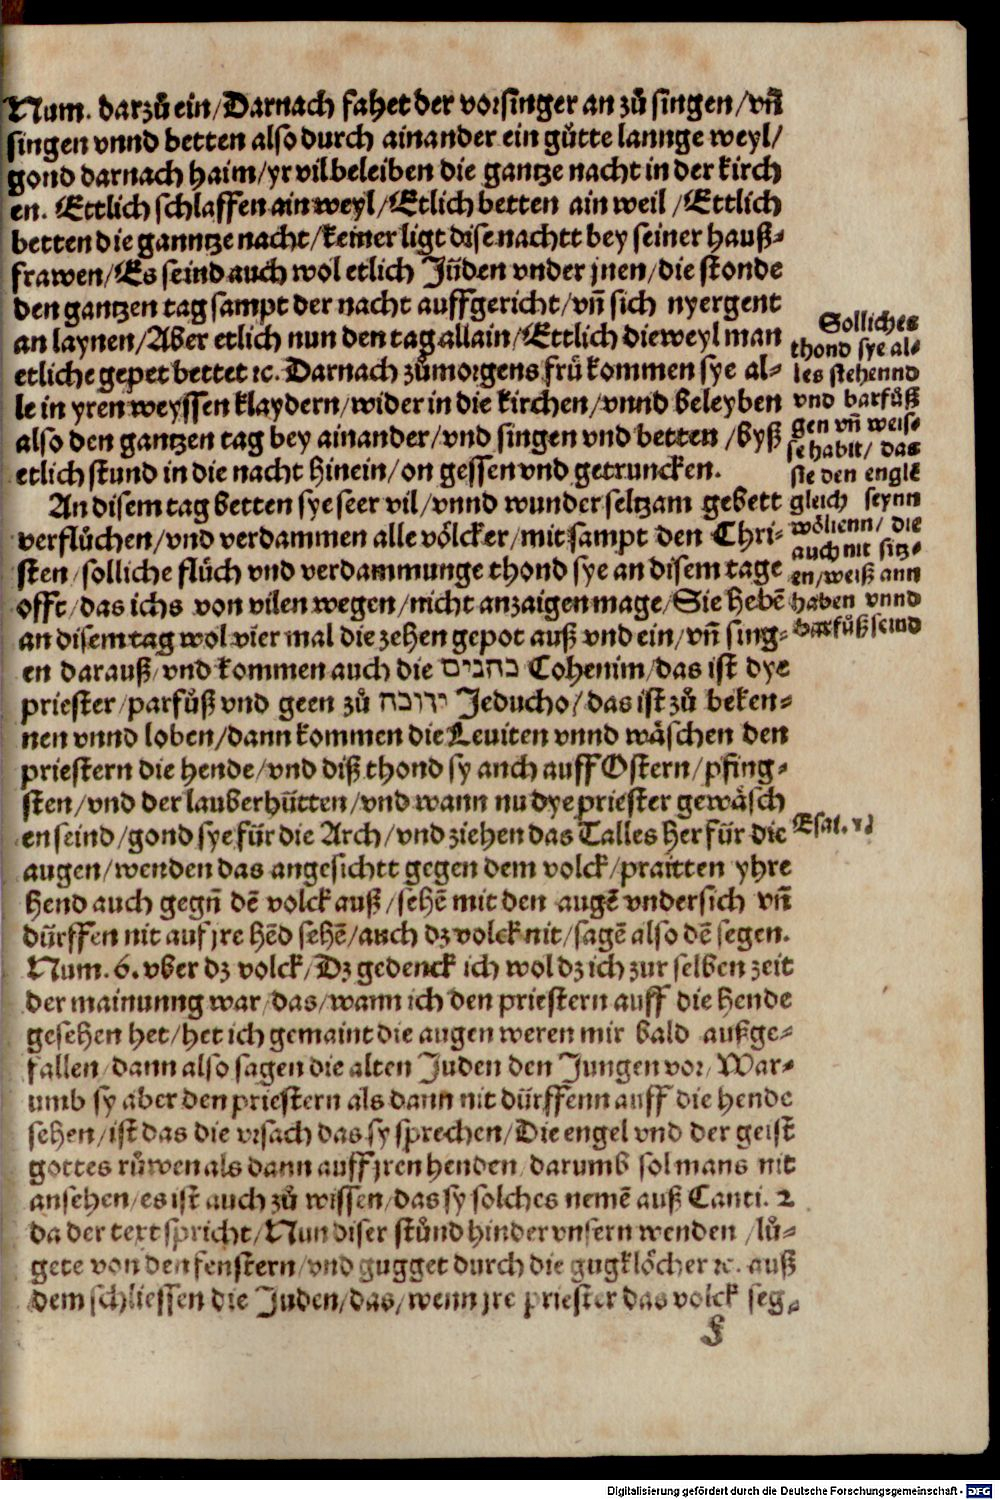 Num. darzů ein/Darnach fahet der vorsinger an zů singen/vñ
singen vnnd betten also durch ainander ein gůtte lannge weyl/
gond darnach haim/yr vil beleiben die gantze nacht in der kirch
en. Ettlich schlaffen ain weyl/Etlich betten ain weil/Ettlich
betten die ganntze nacht/keiner ligt dise nachtt bey seiner hauß-
frawen/Es seind auch wol etlich Jüden vnder jnen/die stonde
den gantzen tag sampt der nacht auffgericht/vñ sich nyergent
an laynen/Aber etlich nun den tag allain/Ettlich dieweyl man
etliche gepet bettet ꝛc. Darnach zůmorgens frů kommen sye al-
le in yren weyssen klaydern/wider in die kirchen/vnnd beleyben
also den gantzen tag bey ainander/vnd singen vnd betten/byß
etlich stund in die nacht hinein/on gessen vnd getruncken.
An disem tag betten sye seer vil/vnnd wunder seltzam gebett
verflůchen/vnd verdammen alle völcker/mit sampt den Chri-
sten/solliche flůch vnd verdammunge thond sye an disem tage
offt/das ichs von vilen wegen/nicht anzaigen mage/Sie hebē
an disem tag wol vier mal die zehen gepot auß vnd ein/vñ sing-
en darauß/vnd kommen auch die כהנים Cohenim/das ist dye
priester/parfůß vnd geen zů ידוכה Jeducho/das ist zů beken-
nen vnnd loben/dann kommen die Leuiten vnnd wäschen den
priestern die hende/vnd diß thond sy auch auff Ostern/pfing-
sten/vnd der lauberhütten/vnd wann nu dye priester gewäsch
en seind/gond sye für die Arch/vnd ziehen das Talles herfür die
augen/wenden das angesichtt gegen dem volck/praitten yhre
hend auch gegñ dē volck auß/sehē mit den augē vndersich vñ
dürffen nit auf jre hēd sehē/auch dz volck nit/sagē also dē segen.
Num. 6. vber dz volck/Dz gedenck ich wol dz ich zur selben zeit
der mainunng war/das/wann ich den priestern auff die hende
gesehen het/het ich gemaint die augen weren mir bald außge-
fallen/dann also sagen die alten Juden den Jungen vor/War-
umb sy aber den priestern als dann nit dürffenn auff die hende
sehen/ist das die vrsach das sy sprechen/Die engel vnd der geist
gottes růwen als dann auff jren henden/darumb sol mans nit
ansehen/es ist auch zů wissen/das sy solches nemē auß Canti. 2
da der text spricht/Nun diser stůnd hinder vnsern wenden/lů-
gete von den fenstern/vnd gugget durch die gugklöcher ꝛc. auß
dem schliessen die Juden/das/wenn jre priester das volck seg-
Solliches
thond sye al-
les stehennd
vnd barfůß
gen vñ weis-
se habit/ das
sie den englē
gleich seynn
wöllenn/ die
auch nit sitz-
en/weiß ann
haben vnnd
barfůß seind
Esai.
Digitalisierung gefördert durch die Deutsche Forschungsgemeinschaft - DFG